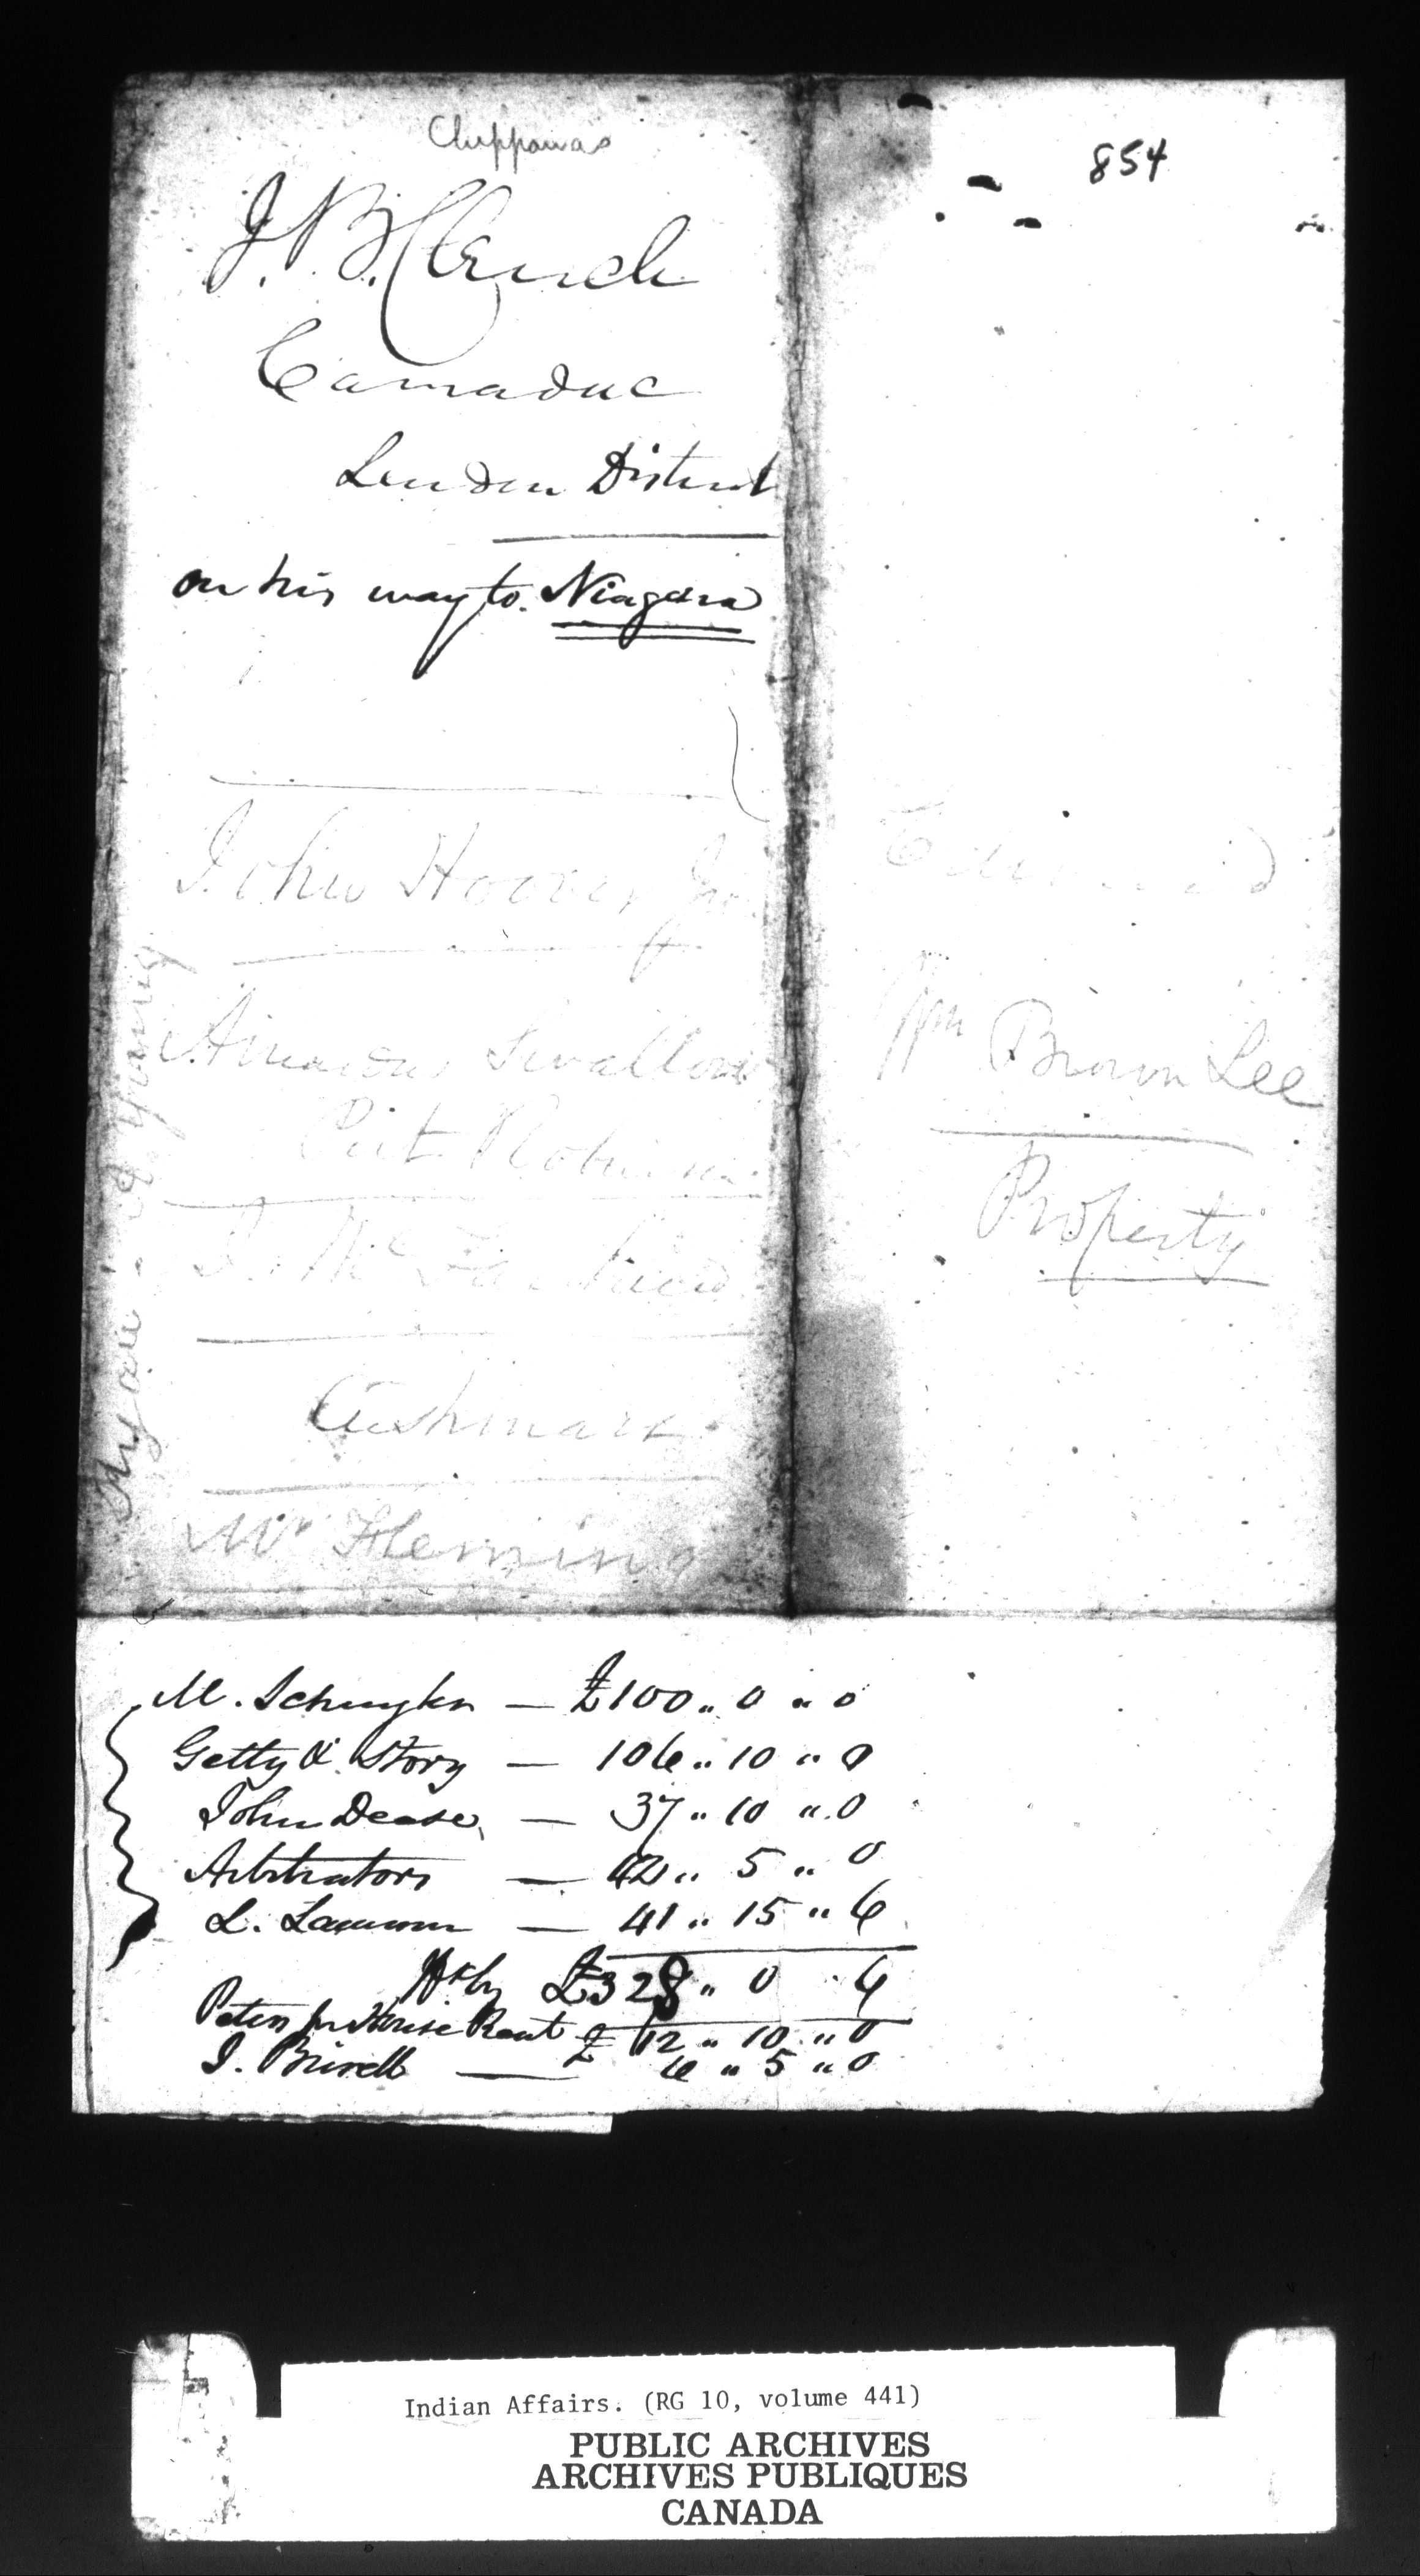 Chippawas
854
J. B. Clench
Carraduc
London District
on his way to Niagara
John Hoover Jnr
Swallow
Port Robinson
Cushman
Mr Fleming
Edward
Wm Brown Lee
Property
M. Schuyler — £100 " 0 " 0
Getty & Story — 106 " 10 " 0
John Dease — 37 " 10 " 0
Arbitrators — 42 " 5 " 0
L. Lawson — 41 " 15 " 6
£328 " 0 6
Peters for House Rent £ 12 " 10 " 0
J. Birrell — 6 " 5 " 0
Indian Affairs. (RG 10, volume 441)
PUBLIC ARCHIVES
ARCHIVES PUBLIQUES
CANADA